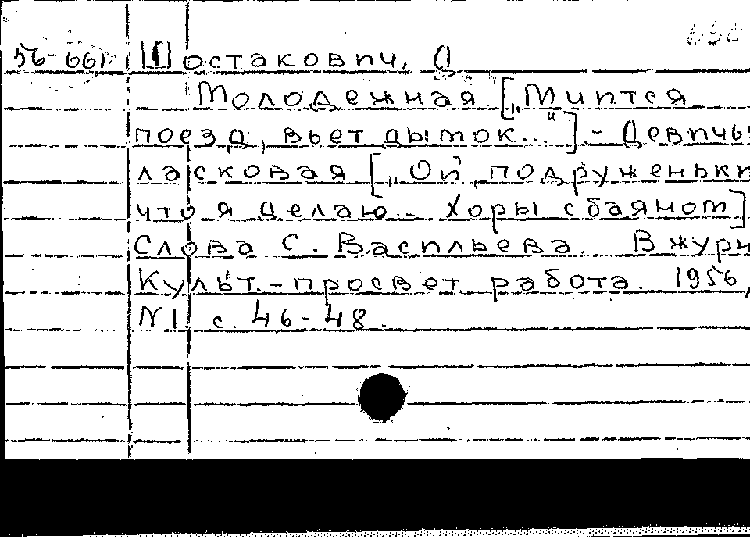 56-661 Шостакович, Д
Молодежная [„Мчится
поезд, вьет дымок..."] - Девичья
ласковая [„Ой, подруженьки
что я делаю. Хоры с баяном]
Слова С. Васильева. В журн
Культ.-просвет работа. 1956,
N1 с. 46-48.